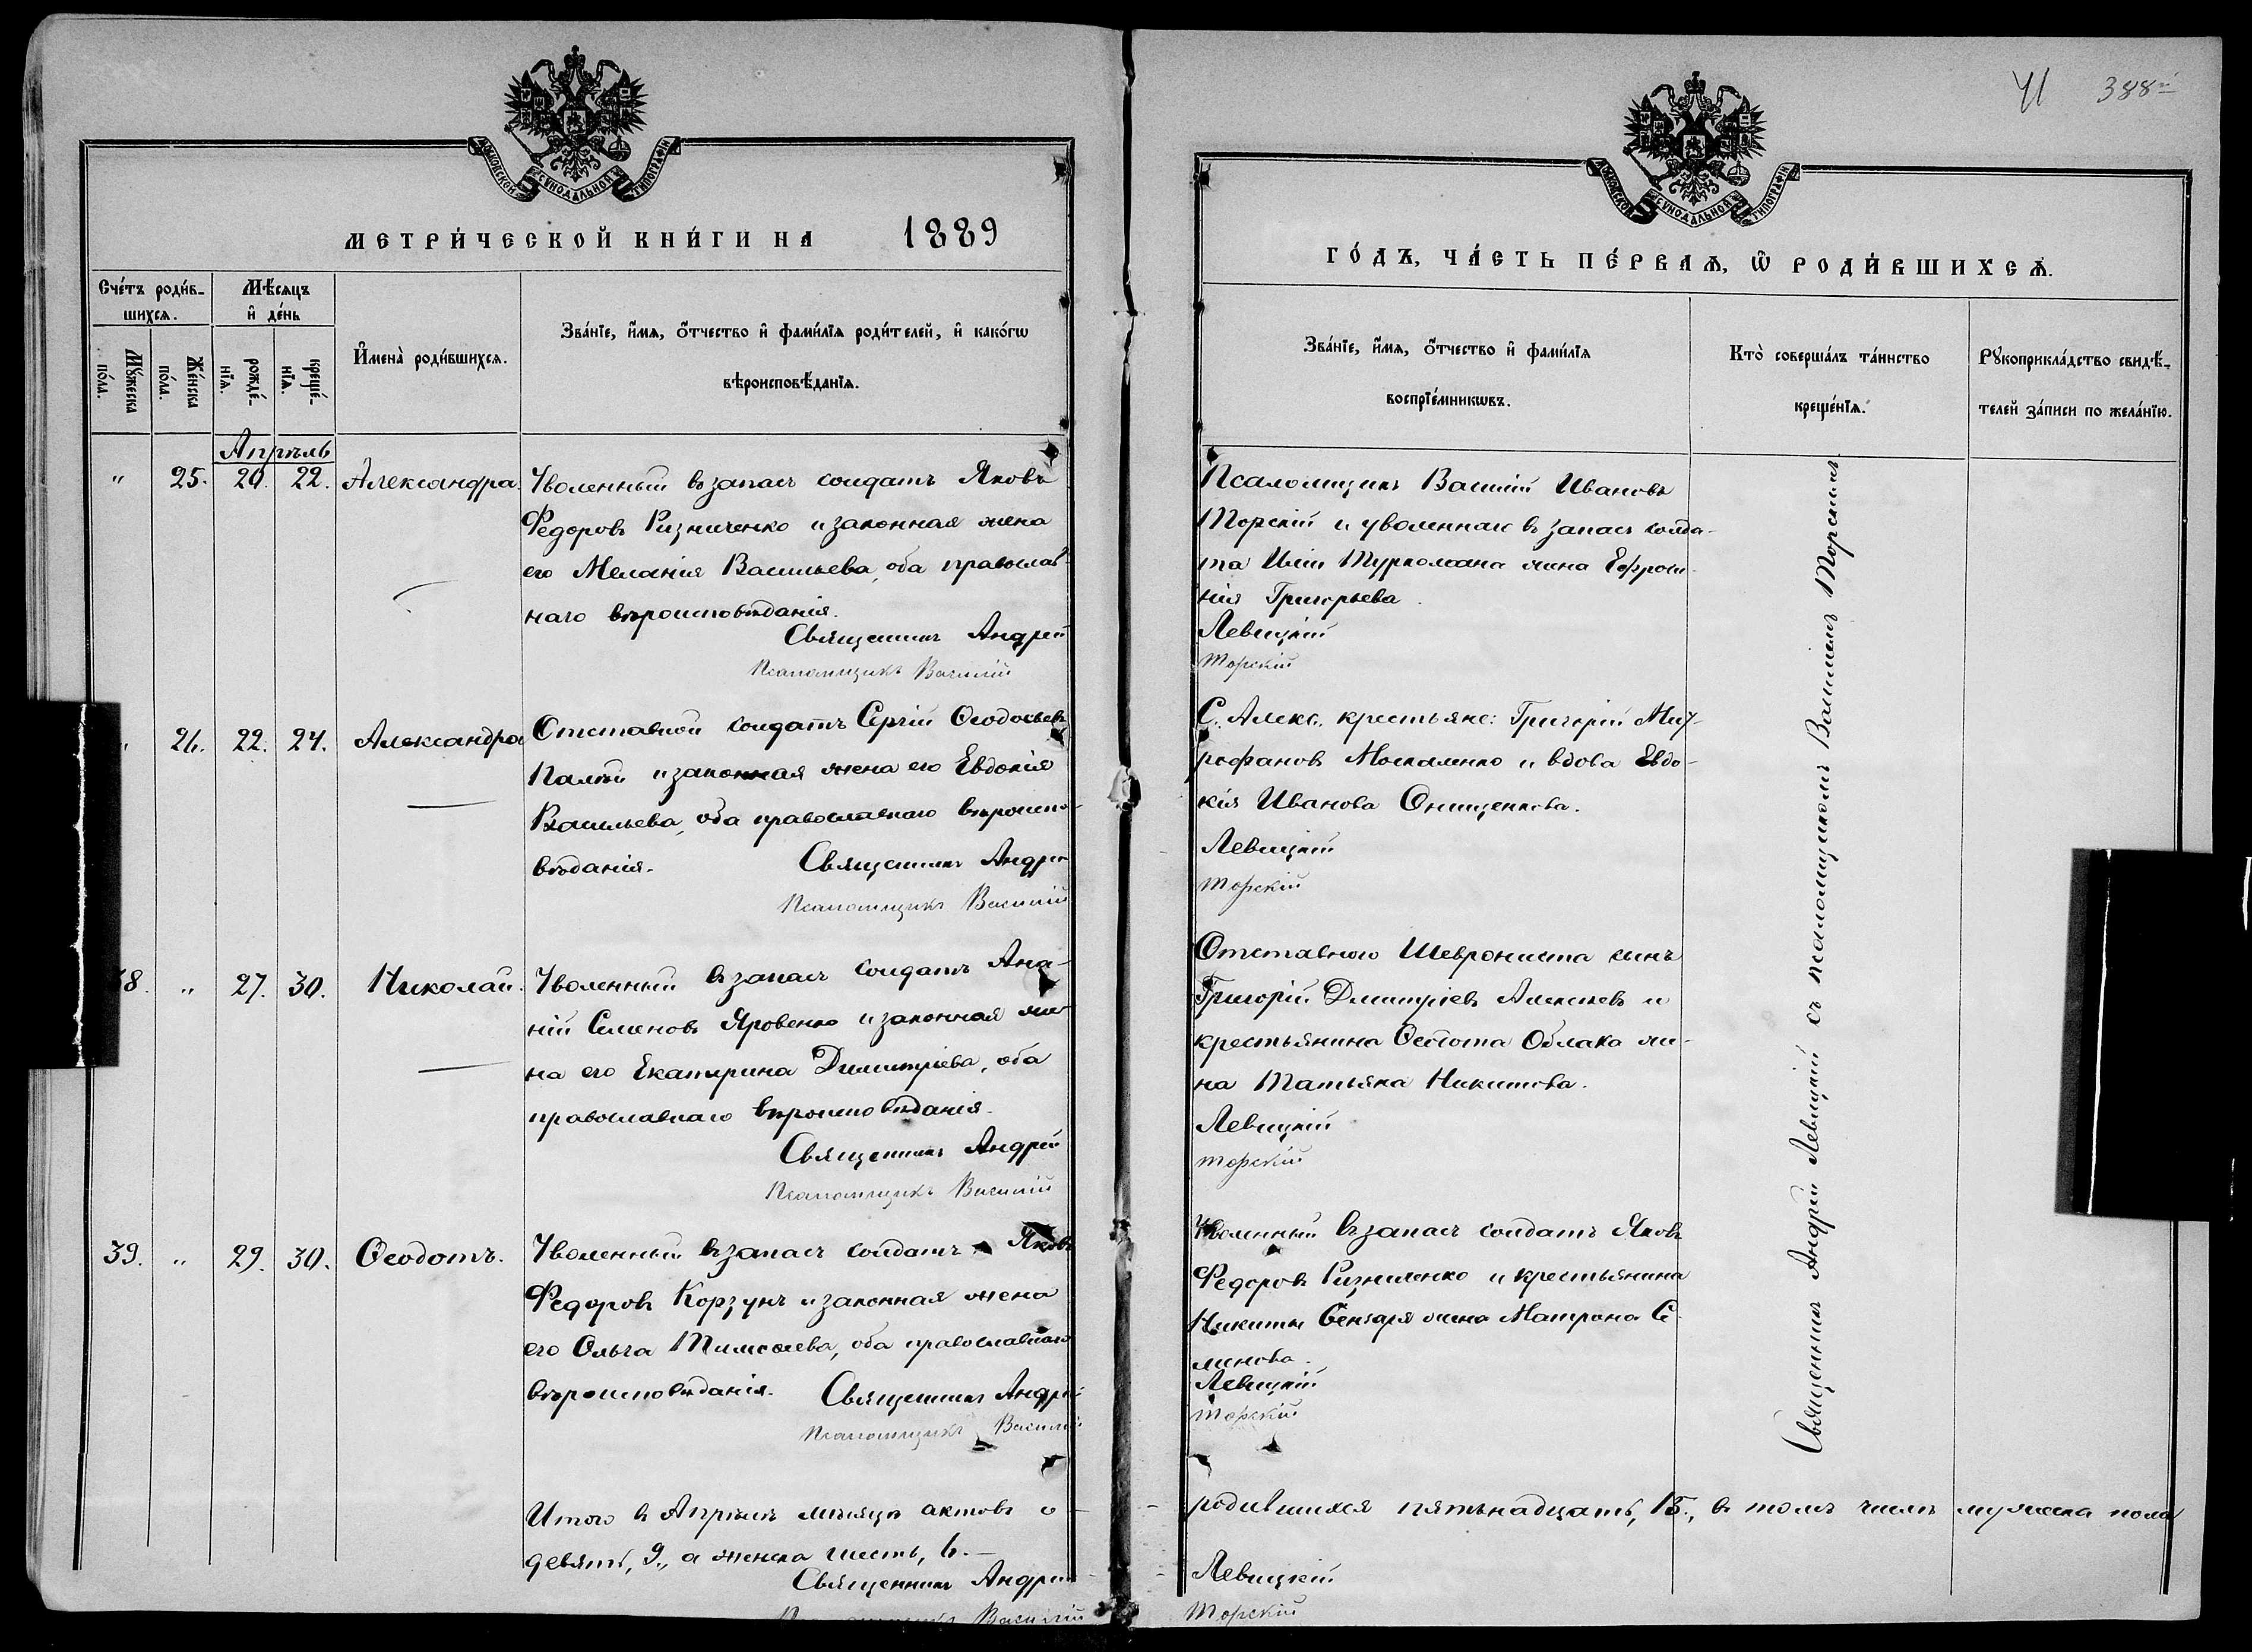 41 388
МОСКОВСКОЙ СУНОДАЛЬНОЙ ТИПОГРАФІИ
МОСКОВСКОЙ СУНОДАЛЬНОЙ ТИПОГРАФІИ
МЕТРИ́ЧЕСКОЙ КНИ́ГИ НА 1889
ГО́ДЪ, ЧА́СТЬ ПЕ́РВАѦ, Ѡ҆ РОДИ́ВШИХСѦ.
Сче́тъ роди́в-
шихсѧ.
Мѣ́сѧцъ
и҆ де́нь
Мꙋ́жеска
по́ла.
Же́нска
по́ла.
рожде́-
нїѧ.
креще́-
нїѧ.
И҆мена̀ роди́вшихсѧ.
Зва́нїе, и҆́мѧ, о҆́тчество и҆ фами́лїѧ роди́телей, и҆ како́гѡ
вѣроисповѣ́данїѧ.
Зва́нїе, и҆́мѧ, о҆́тчество и҆ фами́лїѧ
воспрїе́мникѡвъ.
Кто̀ соверша́лъ та́инство
креще́нїѧ.
Рꙋкоприкла́дство свидѣ́-
телей за́писи по жела́нїю.
Апрѣль
" 25. 20. 22. Александра.
Уволенный въ запасъ солдатъ Яковъ
Ѳедоровъ Ризниченко и законная жена
его Меланія Васильева, оба православ-
наго вѣроисповѣданія.
Священникъ Андрей
Псаломщикъ Василій
Псаломщикъ Василій Ивановъ
Торскій и уволеннаго въ запасъ солда-
та Иліи Туркомана жена Ефроси-
нія Григорьева.
Левицкій
Торскій
" 26. 22. 24. Александра
Отставной солдатъ Сергій Ѳеодосьевъ
Палій и законная жена его Евдокія
Васильева, оба православнаго вѣроиспо-
вѣданія. Священникъ Андрей
Псаломщикъ Василій
С. Алекс. крестьяне: Григорій Мит-
рофановъ Москаленко и вдова Евдо-
кія Иванова Онищенкова.
Левицкій
Торскій
38. " 27. 30. Николай.
Уволенный въ запасъ солдатъ Ана-
ній Семеновъ Яровенко и законная же-
на его Екатерина Димитріева, оба
православнаго вѣроисповѣданія.
Священникъ Андрей
Псаломщикъ Василій
Отставного Шеврониста сынъ
Григорій Димитріевъ Алексѣевъ и
крестьянина Облака же-
на Татьяна Никитова.
Левицкій
Торскій
39. " 29. 30. Ѳеодотъ.
Уволенный въ запасъ солдатъ Яковъ
Ѳедоровъ Корзунъ и законная жена
его Ольга Тимоѳеева, оба православнаго
вѣроисповѣданія. Священникъ Андрей
Псаломщикъ Василій
Уволенный въ запасъ солдатъ Яковъ
Ѳедоровъ Ризниченко и крестьянина
Никиты жена Матрона Се-
менова.
Левицкій
Торскій
Священникъ Андрей Левицкій съ псаломщикомъ Василіемъ Торскимъ
Итого въ Апрѣлѣ мѣсяцѣ актовъ о родившихся пятьнадцать, 15., въ томъ числѣ мужеска пола
девять, 9., а женска шесть, 6.—
Священникъ Андрей Левицкій
Василій Торскій